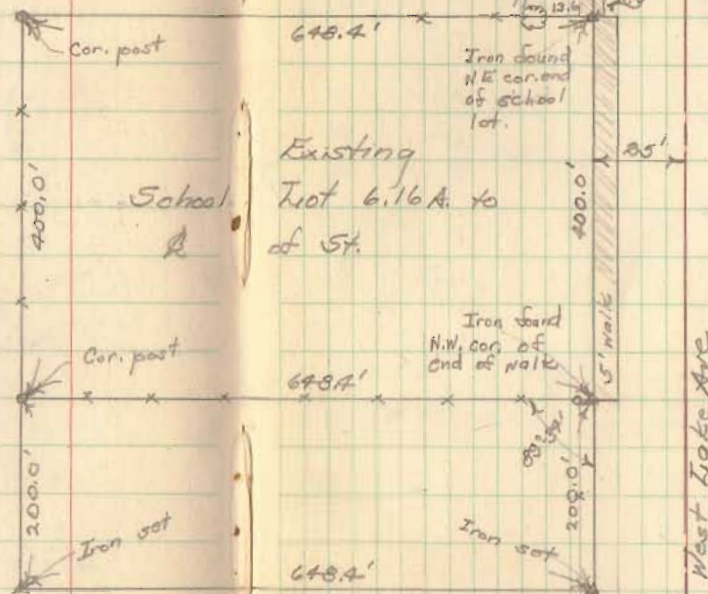 13.6
648.4'
Cor. post
Iron found
NE cor. end
of school
lot.
Existing
School Lot 6.16 A. to
℄ of St.
400.0'
400.0'
35'
5' walk
Iron found
N.W. cor. of
end of walk
Cor. post
648.4'
89°
200.0'
200.0'
Iron set
Iron set
648.4'
West Lake Ave